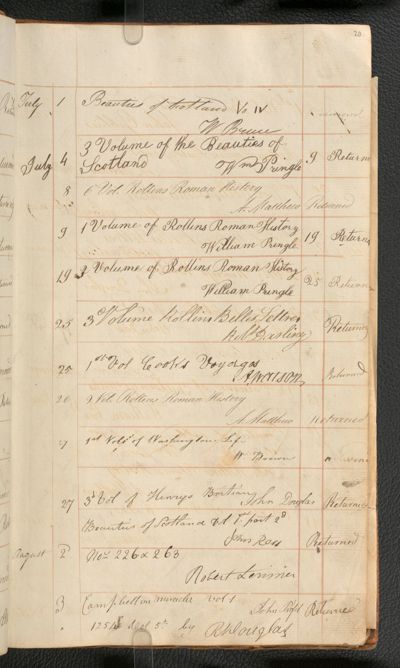 20
July 1 Beauties of Scotland Vo IV
W Bruce
3 Volume of the Beauties of
July 4 Scotland Wm Pringle 9 Returne
8 6 Vol Rollins Roman History
A. Matthew Returned
9 1 Volume of Rollins Roman History
William Pringle 19 Returne
19 2 Volume of Rollins Roman History
William Pringle 25 Return
25 3d Volume Rollins Belles Lettres
Robt Darling Returned
25 1st Vol Cook's Voyages
Returned
9 Vol Rollins Roman History
A. Matthew Returned
1st Vol of Washingtons Life
W
27 3d Vol of Henrys Britian John Douglas Returned
Beauties of Scotland Vol 5 part 2d
John Returned
August 2 Nos 226 & 263
Robert Lorimer
3 Campbell on miracles vol 1
John Returne
Vol 5th by R Douglas